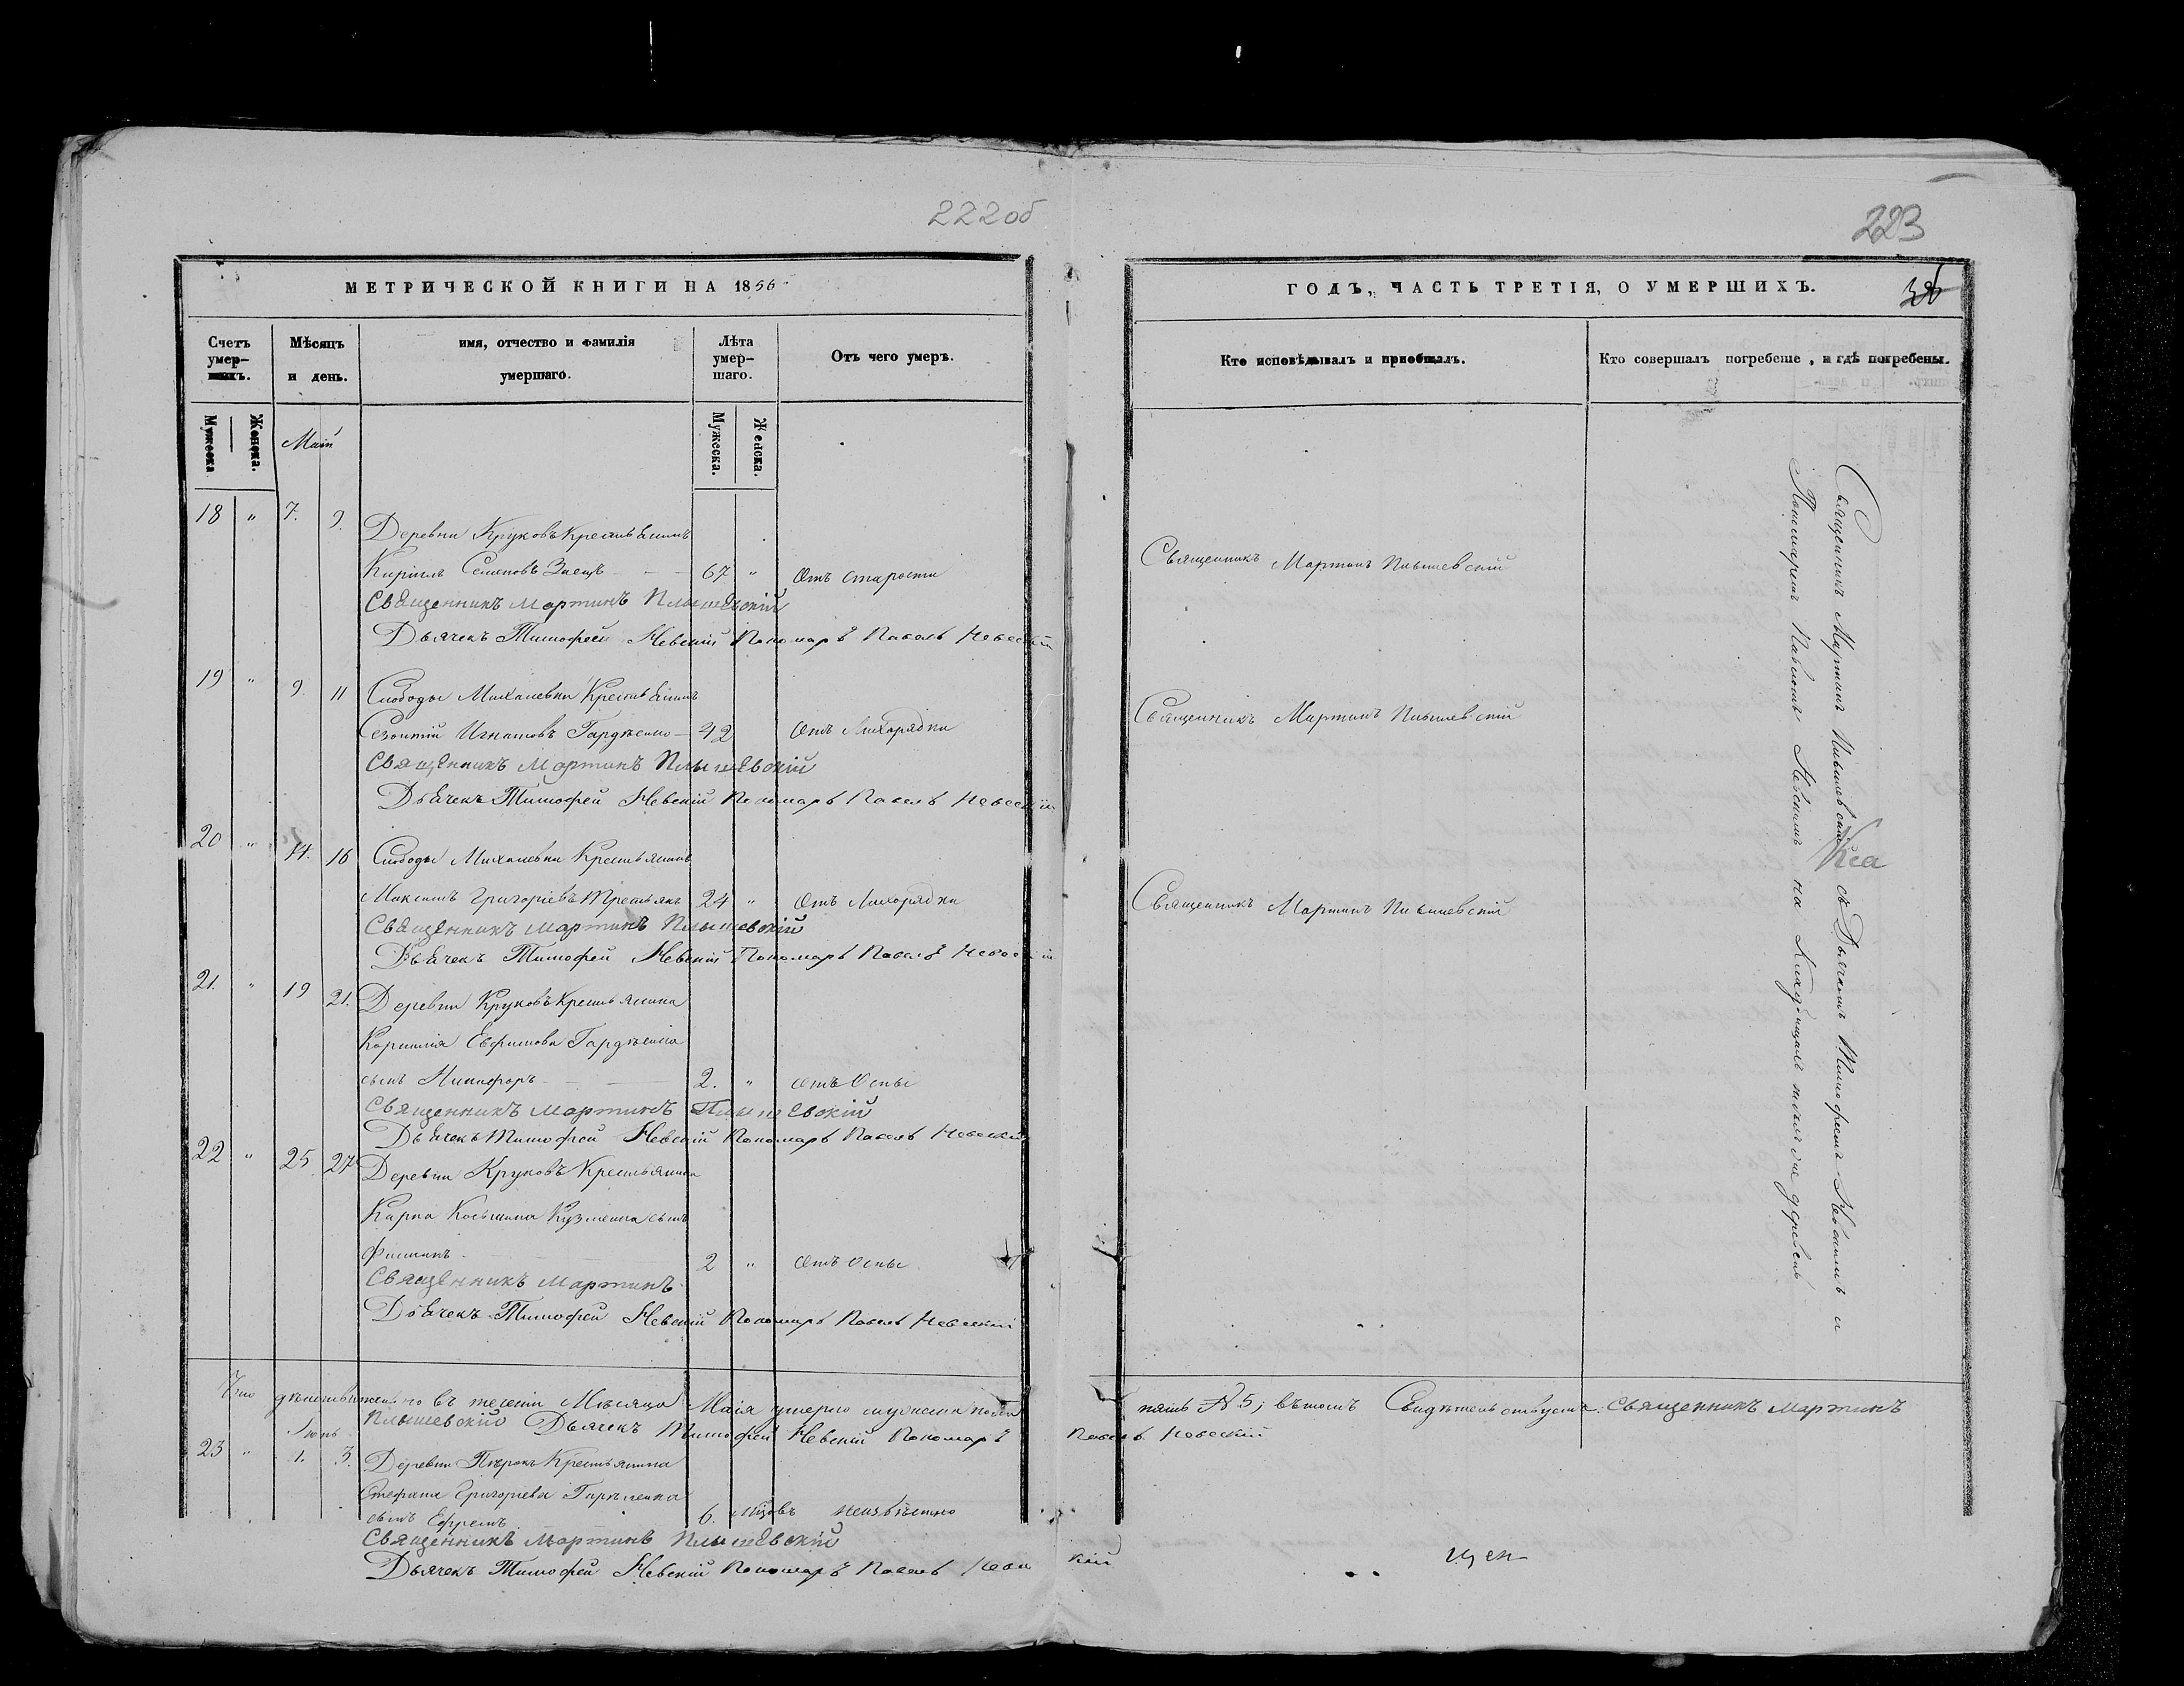 222 об
223
МЕТРИЧЕСКОЙ КНИГИ НА 1856
ГОДЪ, ЧАСТЬ ТРЕТІЯ, О УМЕРШИХЪ.
Счетъ умер-
шихъ.
Мѣсяцъ
и день.
имя, отчество и фамилія
умершаго.
Лѣта
умер-
шаго.
Отъ чего умеръ.
Кто исповѣдывалъ и приобщалъ.
Кто совершалъ погребеніе, и гдѣ погребены.
Мужеска
Женска.
Маій
Мужеска.
Женска.
18 " 7. 9.
Деревни Круковъ Крестьянинъ
Кирилъ Семеновъ Заецъ 67 " Отъ старости
Священникъ Мартинъ Плышевскій
Дьячекъ Тимофей Невскій Пономарь Павелъ Невскій
Священникъ Мартинъ Плышевскій
19 " 9. 11 Слободы Михалевки Крестьянинъ
Игнатовъ 42 Отъ Лихорадки
Священникъ Мартинъ Плышевскій
Дьячекъ Тимофей Невскій Пономарь Павелъ Невскій
Священникъ Мартинъ Плышевскій
20 " 14. 16 Слободы Михалевки Крестьянинъ
Максимъ Григоріевъ Третьякъ 24 " Отъ Лихорадки
Священникъ Мартинъ Плышевскій
Дьячекъ Тимофей Невскій Пономарь Павелъ Невскій
Священникъ Мартинъ Плышевскій
21. " 19 21. Деревни Круковъ Крестьянина
Корнилія Евфимова
сынъ Никифоръ 2. " отъ Оспы
Священникъ Мартинъ Плышевскій
Дьячекъ Тимофей Невскій Пономарь Павелъ Невскій
22 " 25 27 Деревни Круковъ Крестьянина
Карпа Косьмина Кузменка сынъ
Филипъ 2 " отъ Оспы
Священникъ Мартинъ
Дьячекъ Тимофей Невскій Пономарь Павелъ Невскій
Священникъ Мартинъ Плышевскій съ Дьячкомъ Тимофеемъ Невскимъ и
Пономаремъ Павломъ Невскимъ на Кладбищахъ деревень
Что дѣйствительно въ теченіи Мѣсяца Маія умерло мужеска пола
пять № 5; въ томъ Свидѣтельствуемъ: Священникъ Мартинъ
Плышевскій Дьячекъ Тимофей Невскій Пономарь Павелъ Невскій
Іюнь
23 " 1. 3. Деревни Крестьянина
Стефана Григоріева
сынъ Ефремъ 6. мцовъ Неизвѣстно
Священникъ Мартинъ Плышевскій
Дьячекъ Тимофей Невскій Пономарь Павелъ Невскій